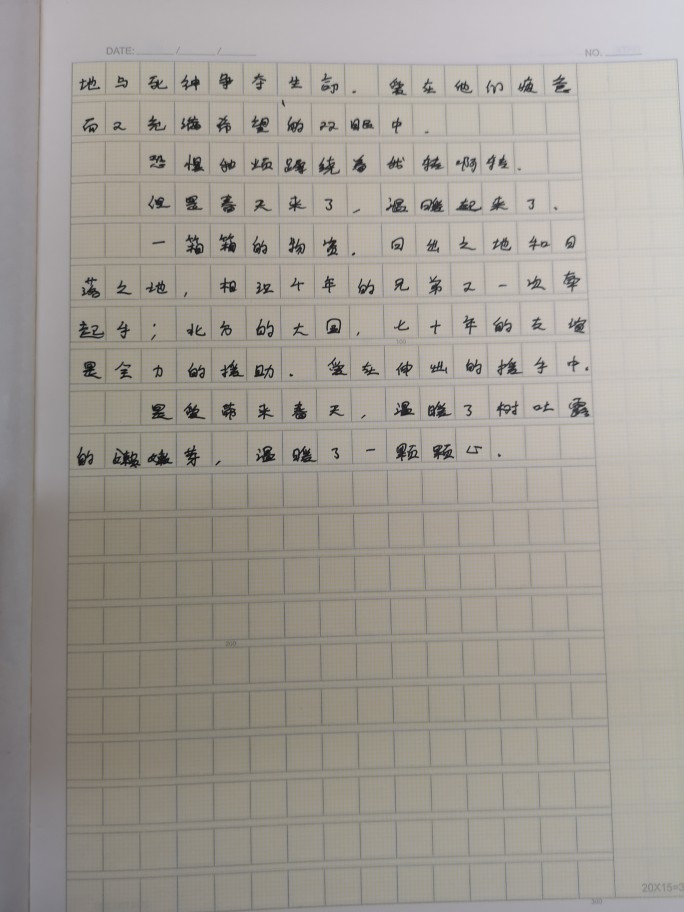 DATE: / /
NO.
地与死神争夺生命.爱在他们疲惫
而又充满希望的双眼中.
恐惧和烦躁绕着就转啊转.
但是春天来了,温暖起来了.
一箱箱的物资.日出之地和日
落之地,相识千年的兄弟又一次牵
起手;北方的大国,七十年的友谊
是全力的援助.爱在伸出的援手中.
是爱带来春天,温暖了树吐露
的嫩芽,温暖了一颗颗心.
200
300